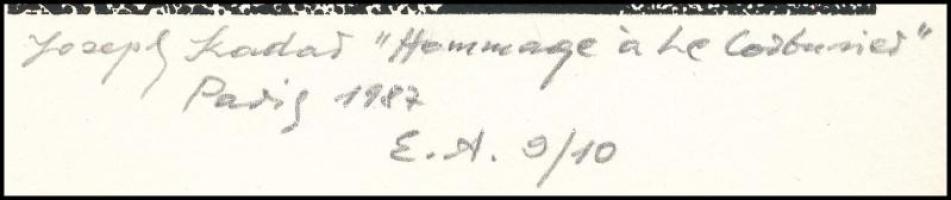 Joseph Kadar "Hommage à Le Corbusier"
Paris 1987
E.A. 9/10